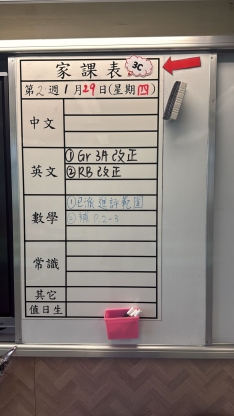 家課表 3C
第2週1月29日(星期四)
中文
英文
① Gr 3A 改正
② RB 改正
數學
①已派進評範圍
②補 P.2-3
常識
其它
值日生